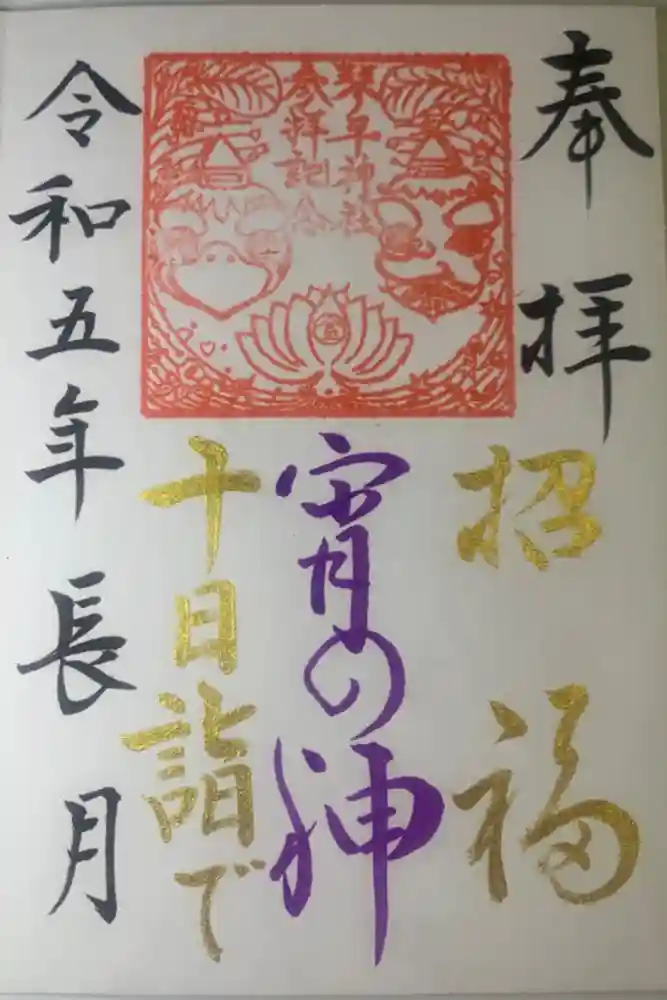 奉拝
招福
琴早神社
参拝記念
宵の神
十日詣で
令和五年長月